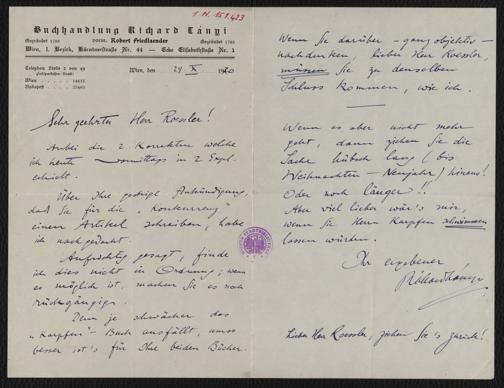 I.N. 151.423
Buchhandlung Richard Lányi
Gegründet 1785 vorm. Robert Friedlaender Gegründet 1785
Wien, I. Bezirk, Kärntnerstraße Nr. 44 — Ecke Elisabethstraße Nr. 1
Wien, den 29 X. 1920
Sehr geehrter Herr Roessler!
Anbei die 2. Korrektur welche
ich heute vormittags in 2 Expl.
erhielt.
Über Ihre gestrige Ankündigung,
daß Sie für die „Konkurrenz"
einen Artikel schreiben, habe
ich nachgedacht.
Aufrichtig gesagt, finde
ich dies nicht in Ordnung; wenn
es möglich ist, machen Sie es noch
rückgängig.
Denn je schwächer das
„Karpfen" Buch ausfällt, umso
besser ist's für Ihre beiden Bücher.
Wenn Sie darüber – ganz objektiv –
nachdenken, lieber Herr Roessler,
müssen Sie zu demselben
Schluss kommen, wie ich.
Wenn es aber nicht mehr
geht, dann ziehen Sie die
Sache hübsch lang (bis
Weihnachten – Neujahr) hinaus!
Oder noch länger!!
Aber viel lieber wär's mir,
wenn Sie Herrn Karpfen
lassen würden.
Ihr ergebener
Richard Lányi
Lieber Herr Roessler, ziehen Sie's zurück!